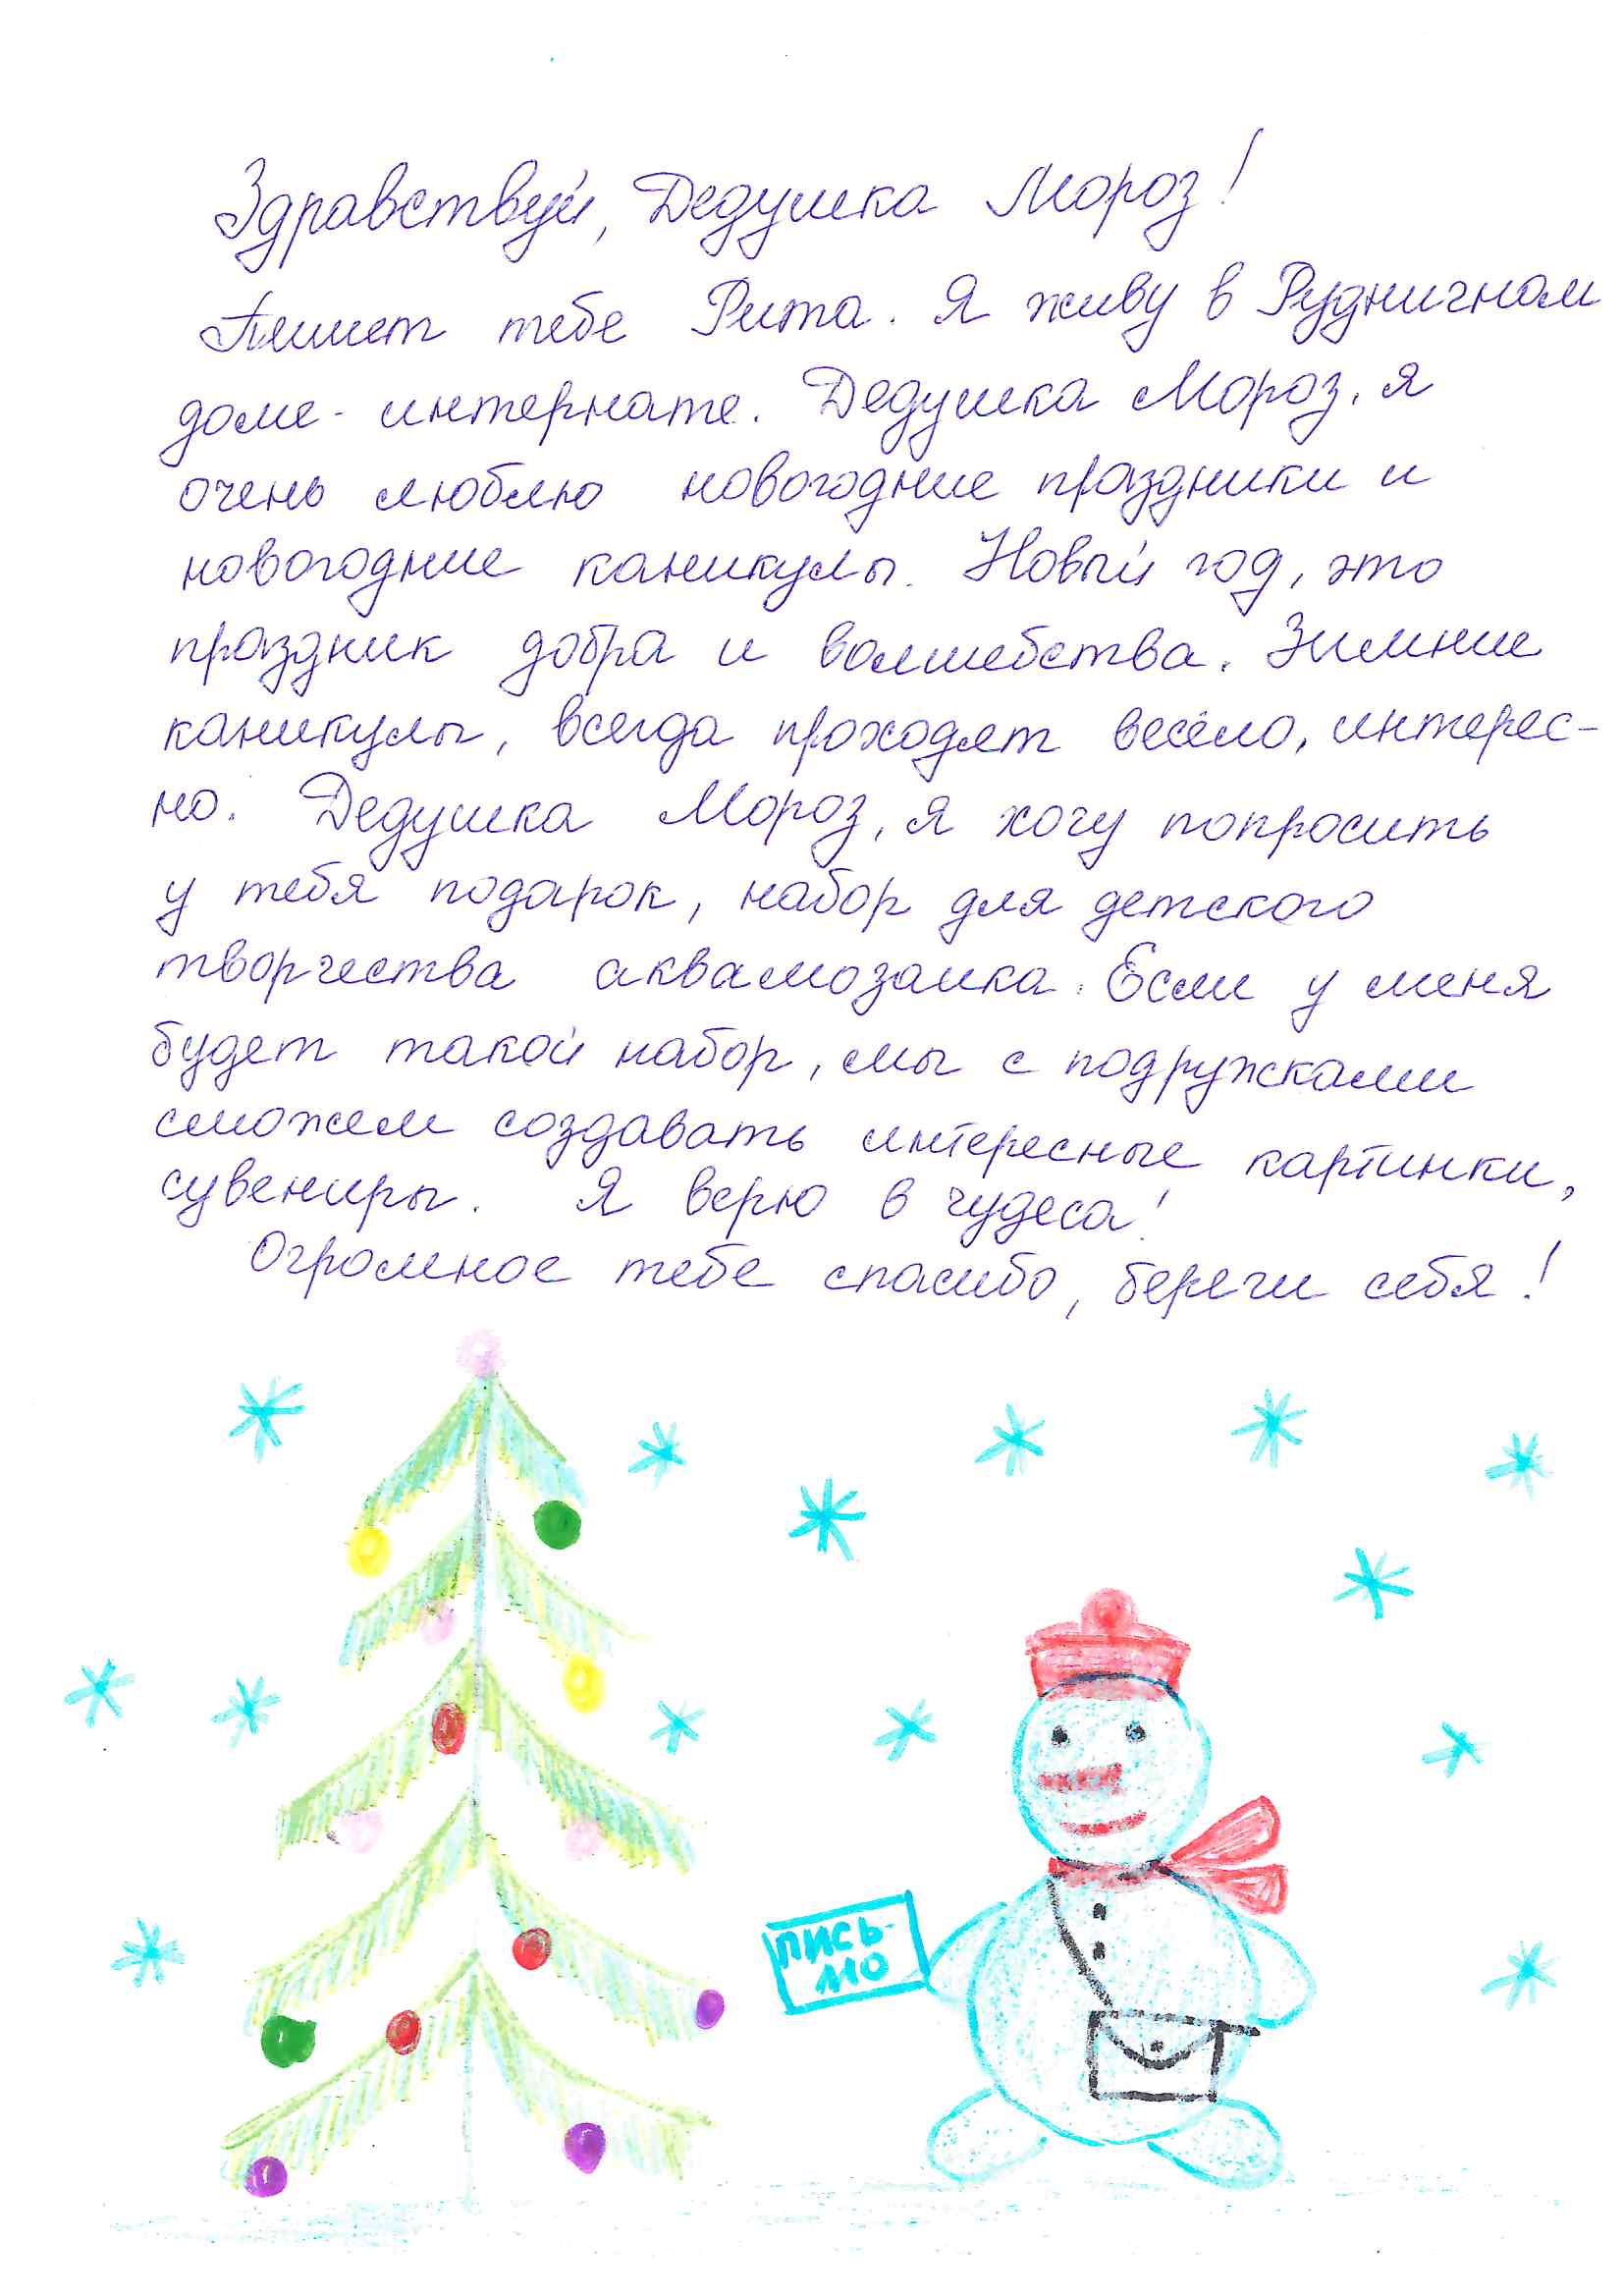 Здравствуй, Дедушка Мороз!
Пишет тебе Рита. Я живу в Рудничном
доме-интернате. Дедушка Мороз, я
очень люблю новогодние праздники и
новогодние каникулы. Новый год, это
праздник добра и волшебства. Зимние
каникулы, всегда проходят весело, интерес-
но. Дедушка Мороз, я хочу попросить
у тебя подарок, набор для детского
творчества аквамозаика. Если у меня
будет такой набор, мы с подружками
сможем создавать интересные картинки,
сувениры. Я верю в чудеса!
Огромное тебе спасибо, береги себя!
ПИСЬ-
МО